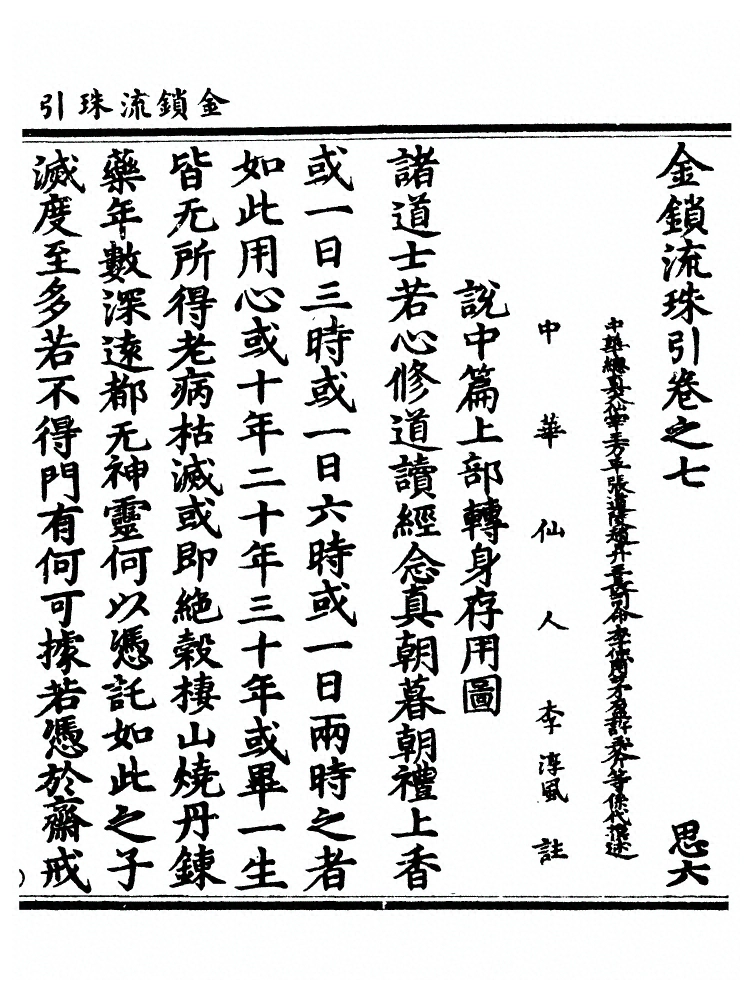 金鎖流珠引
金鎖流珠引卷之七
思六
中華仙人李淳風註
說中篇上部轉身存用圖
諸道士若心修道讀經念真朝暮朝禮上香
或一日三時或一日六時或一日兩時之者
如此用心或十年二十年三十年或畢一生
皆无所得老病枯滅或即絕穀棲山燒丹鍊
藥年數深遠都无神靈何以憑託如此之子
滅度至多若不得門有何可據若憑於齋戒